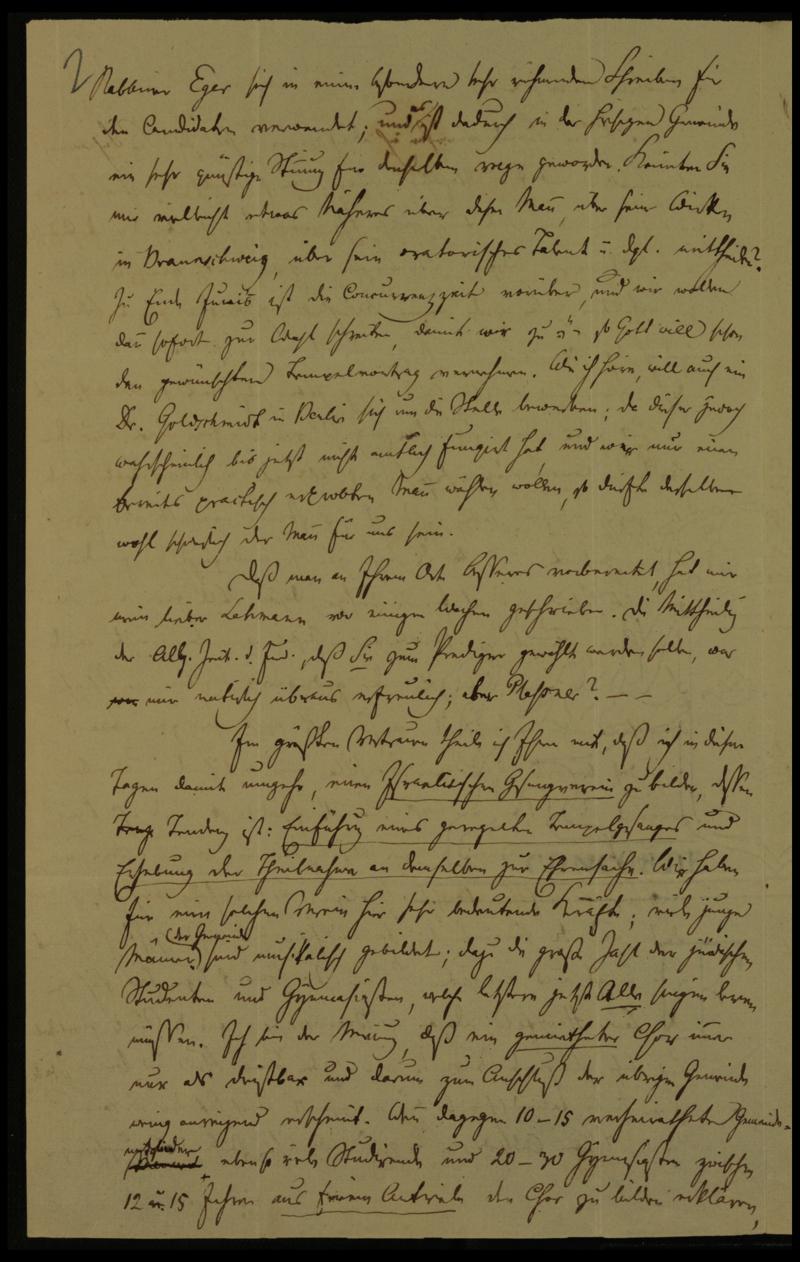 2
Rabbiner Eger sich in einem besonders sehr rühmenden Schreiben für
den Candidaten verwendet; und es ist dadurch in der hiesigen Gemeinde
ein sehr günstige Stimung für denselben rege geworden. Könnten Sie
mir vielleicht etwas Näheres über diesen Man, über sein Wirken
in Braunschweig, über sein oratorisches Talent u. dgl. mittheilen?
Zu Ende Junius ist die Concurrenzzeit vorüber, und wir wollen
dan sofort zur Wahl schreiten, damit wir zu so Gott will schon
den gewünschten Tempelvortrag vernehmen. Wie ich höre, will auch ein
Dr. Goldschmidt in Berlin sich um die Stelle bewerben; da dieser jedoch
wahrscheinlich bis jetzt nicht amtlich fungirt hat und wir nur einen
bereits practisch erprobten Man wählen wollen, so dürfte derselbe
wohl schwerlich der Man für uns sein.
Daß man an Ihrem Orte Besseres vorbereitet, hat mir
mein lieber Lehmann vor einigen Wochen geschrieben. Die Mittheilg
der Allg. Zeit. d. Jud., daß Sie zum Prediger gewählt werden sollen, war
mir natürlich überaus erfreulich; aber Plessner? — —
Im größten Vertrauen theile ich Ihnen mit, daß ich in diesen
Tagen damit umgehe, einen Israelitischen Gesangverein zu bilden, dessen
Tendenz ist: Einführg eines geregelten Tempelgesanges und
Erhebung der Theilnahme an demselben zur Ehrensache. Wir haben
für einen solchen Verein hier sehr bedeutende Kräfte; viele junge
Mäner (der Gemeinde) sind musikalisch gebildet; dazu die große Zahl der jüdischen
Studenten und Gymnasiasten, welche letztere jetzt Alle singen lernen
müssen. Ich bin der Meinung, daß ein gemietheter Chor imer
nur als dienstbar und darum zum Anschluß der übrigen Gemeinde
wenig anregend erscheint. Wen dagegen 10–15 verheirathete Gemeinde-
mitglieder ebenso viele Studirende und 20–30 Gymnasiasten zwischen
12 u. 15 Jahren aus freiem Antriebe den Chor zu bilden erklären,